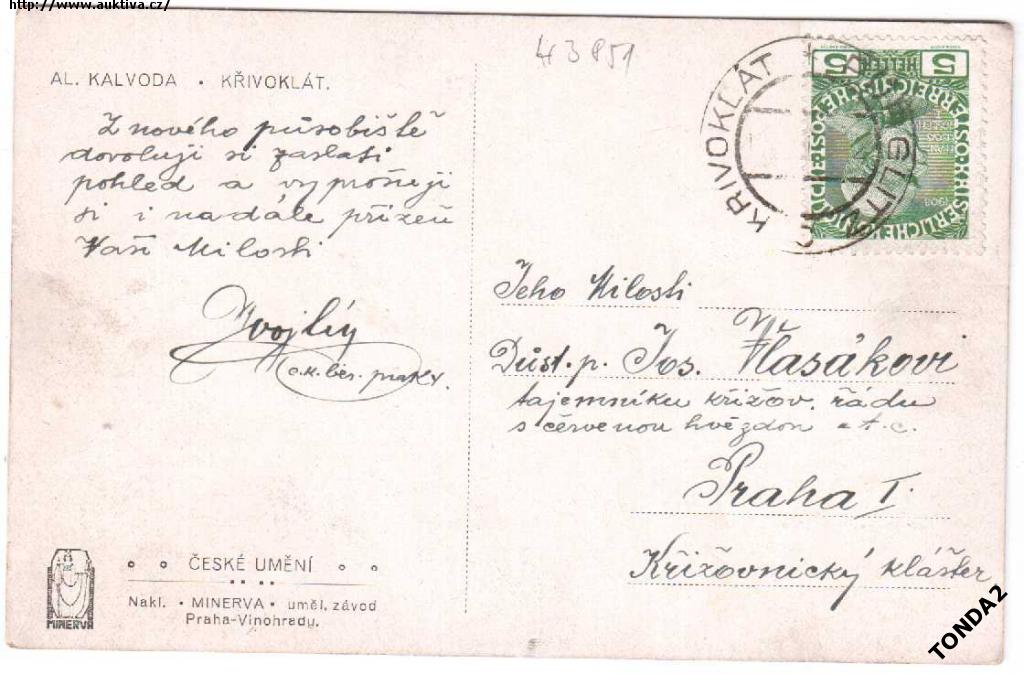 http://www.auktiva.cz/
43851
AL. KALVODA • KŘIVOKLÁT.
Z nového působiště
dovoluji si zaslati
pohled a vyprošuji
si i nadále přízeň
Vaší Milosti
KŘIVOKLÁT
5 HELLER 5
1908
Jeho Milosti
Důst. p. Jos. Vlasákovi
tajemníku křižov. řádu
s červenou hvězdou a.t.c.
Praha I.
Křižovnický klášter
ČESKÉ UMĚNÍ
Nakl. • MINERVA • uměl. závod
Praha-Vinohrady.
MINERVA
TONDA2